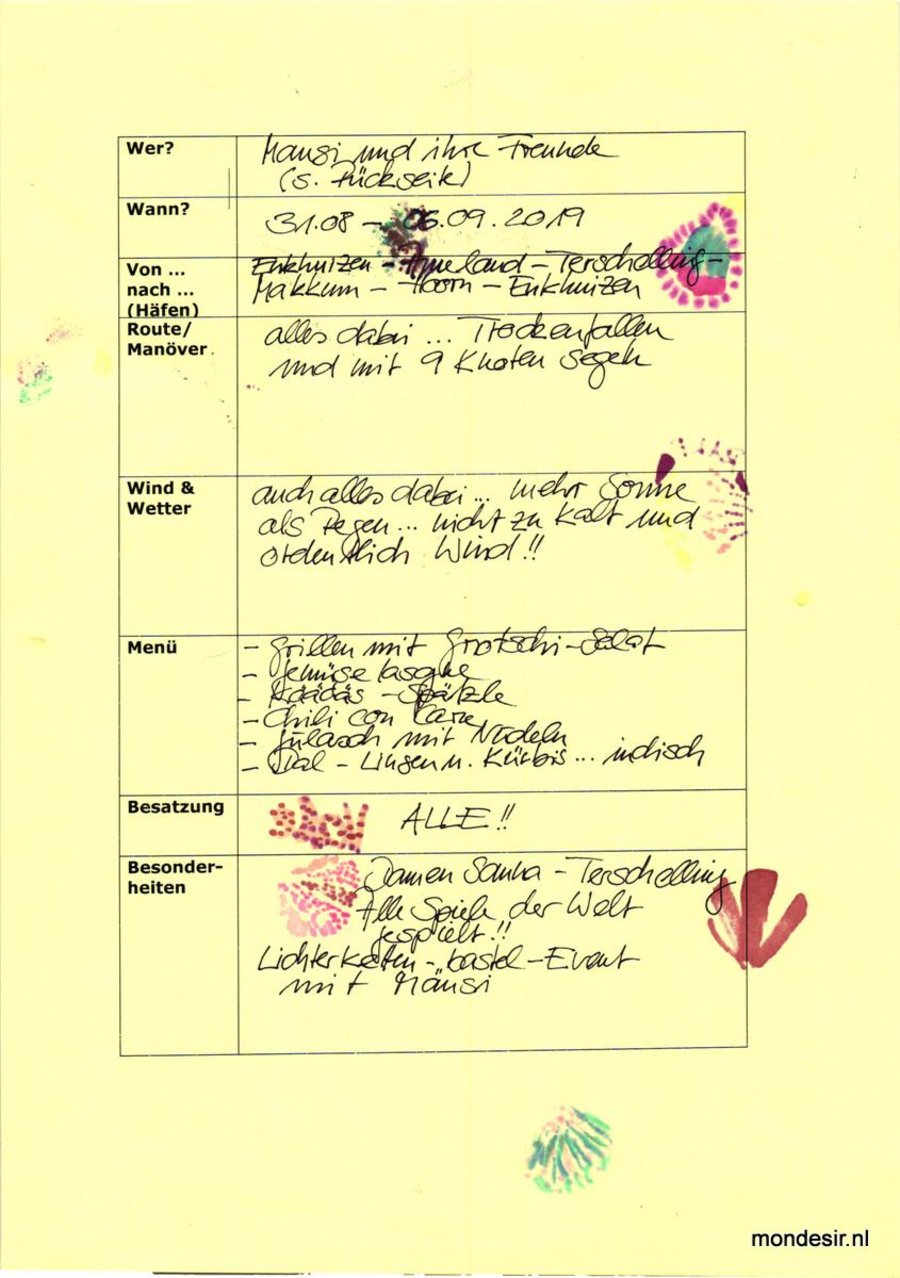 Wer?
Mausi und ihre Freunde
(s. Rückseite)
Wann?
31.08 – 06.09.2019
Von ...
nach ...
(Häfen)
Enkhuizen – Ameland – Terschelling –
Makkum – Hoorn – Enkhuizen
Route/
Manöver.
alles dabei ... Trockenfallen
und mit 9 Knoten Segeln
Wind &
Wetter
auch alles dabei ... mehr Sonne
als Regen ... nicht zu kalt und
ordentlich Wind!!
Menü
– Grillen mit Grotschi-Salat
– Gemüselasagne
– Spätzle
– Chili con Carne
– Gulasch mit Nudeln
– Dal – Linsen u. Kürbis ... indisch
Besatzung
ALLE!!
Besonder-
heiten
Damen Sauna – Terschelling
Alle Spiele der Welt
gespielt!!
Lichterketten – bastel – Event
mit Mäusi
mondesir.nl